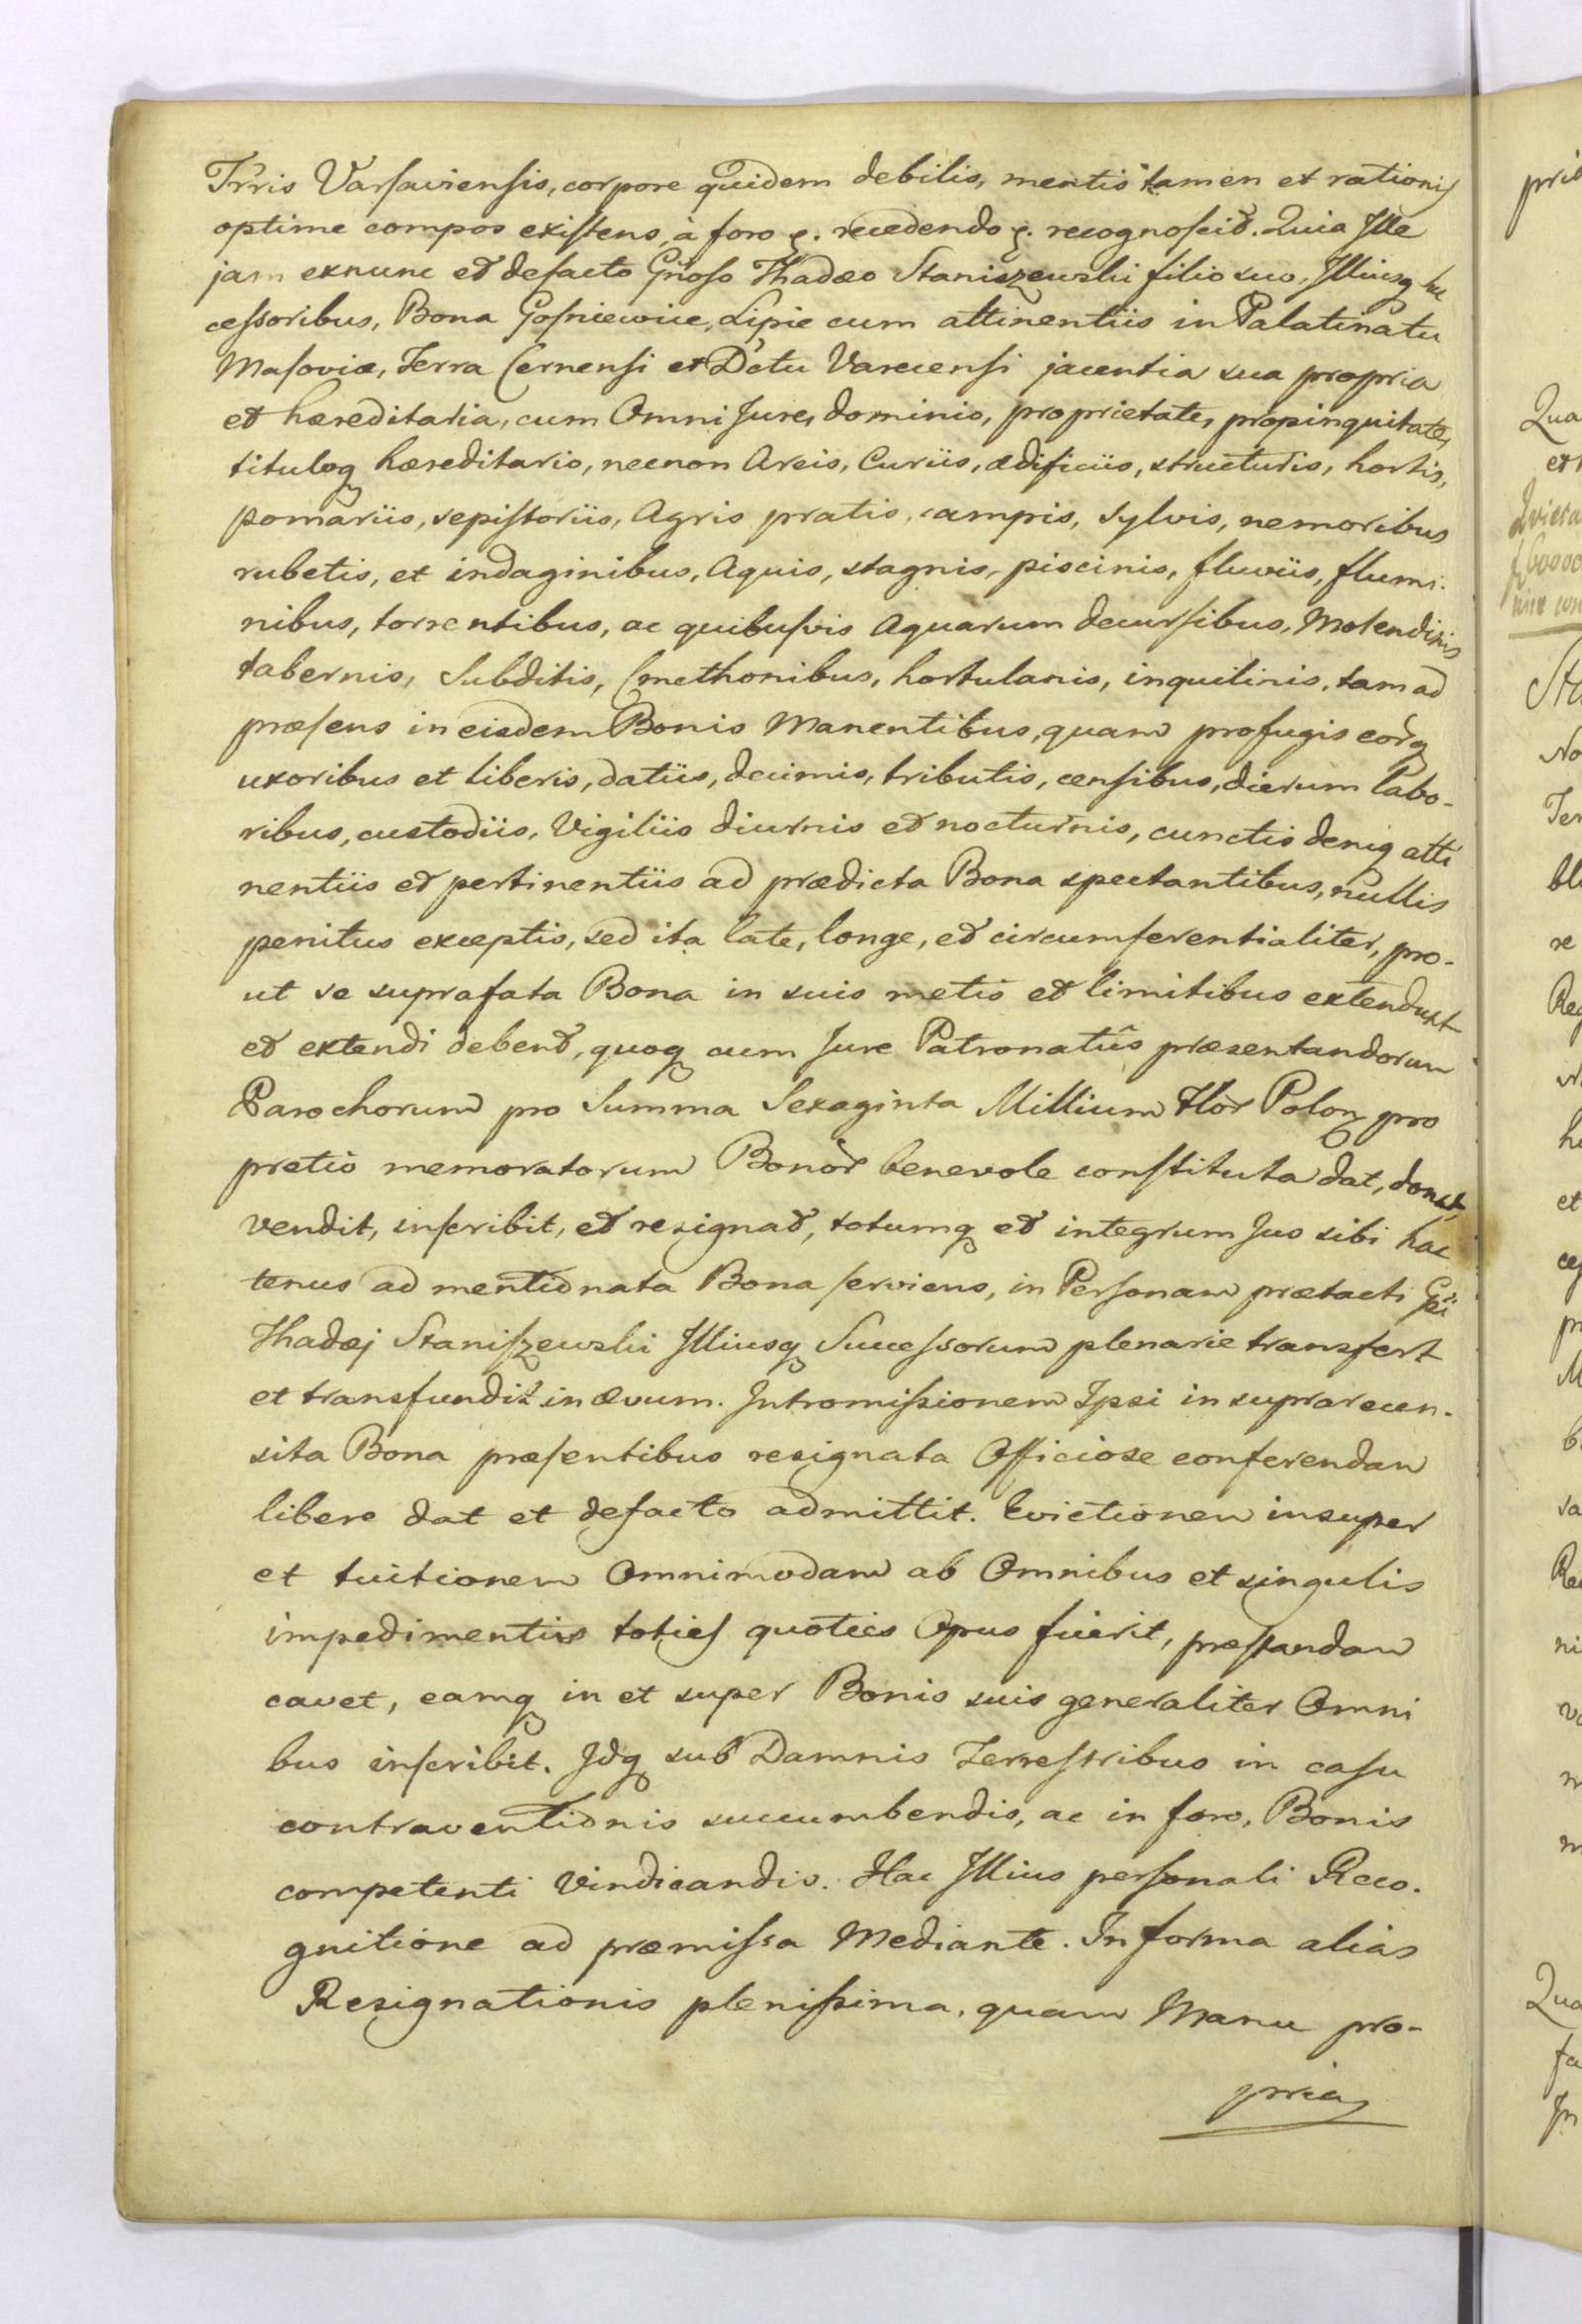 Trris Varsaviensis, corpore quidem debilis, mentis tamen et rationis
optime compos existens, à foro &. recedendo &. recognoscit. Quia Ille
jam exnunc et defacto Gnoso Thadæo Staniszewski filio suo, Illiusq Suc
cessoribus, Bona Gośniewice, Lipie cum attinentiis in Palatinatu
Masoviæ, Terra Cernensi et Dctu Varecensi jacentia sua propria
et hæreditaria, cum Omni Jure, dominio, proprietate, propinquitate,
tituloq hæreditario, necnon Areis, Curiis, ædificiis, structuris, hortis,
pomariis, sepistoriis, Agris pratis, campis, sylvis, nemoribus
rubetis, et indaginibus, Aquis, stagnis, piscinis, fluviis, flumi-
nibus, torrentibus, ac quibusvis Aquarum decursibus, Molendinis
tabernis, Subditis, Cmethonibus, hortulanis, inquilinis, tam ad
præsens in eisdem Bonis Manentibus, quam profugis eorq
uxoribus et liberis, datiis, decimis, tributis, censibus, dierum labo-
ribus, custodiis, Vigiliis diurnis et nocturnis, cunctis deniq atti
nentiis et pertinentiis ad prædicta Bona spectantibus, nullis
penitus exceptis, sed ita late, longe, et circumferentialiter, pro-
ut se suprafata Bona in suis metis et limitibus extendunt
et extendi debent, quoq cum Jure Patronatûs præsentandorum
Parochorum pro Summa Sexaginta Millium Flor Polon pro
pretio memoratorum Bonor benevole constituta dat, donat,
vendit, inscribit, et resignat, totumq et integrum Jus sibi hac
tenus ad mentionata Bona serviens, in Personam prætacti Gsi
Thadæj Staniszewski Illiusq Successorum plenarie transfert
et transfundit in ævum. Intromissionem Ipsi in suprarecen-
sita Bona præsentibus resignata Officiose conferendam
libere dat et defacto admittit. Evictionem insuper
et tuitionem Omnimodam ab Omnibus et singulis
impedimentiis toties quoties Opus fuerit, præstandam
cavet, eamq in et super Bonis suis generaliter Omni
bus inscribit. Idq sub Damnis Terrestribus in casu
contraventionis succumbendis, ac in foro, Bonis
competenti Vindicandis. Hac Illius personali Reco-
gnitione ad præmissa Mediante. In forma alias
Resignationis plenissima, quam Manu pro-
pria